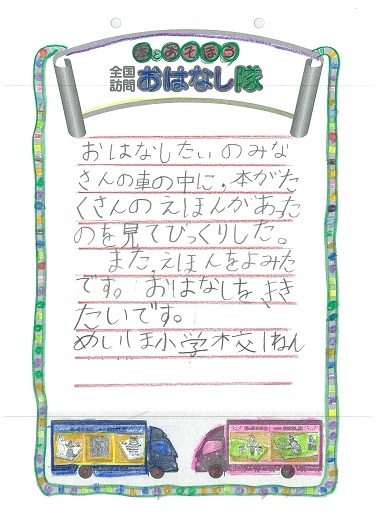 本とあそぼう
全国訪問おはなし隊
おはなしたいのみな
さんの車の中に,本がた
くさんのえほんがあった
のを見てびっくりした。
また,えほんをよみた
です。おはなしをきき
たいです。
めいほ小学校1ねん